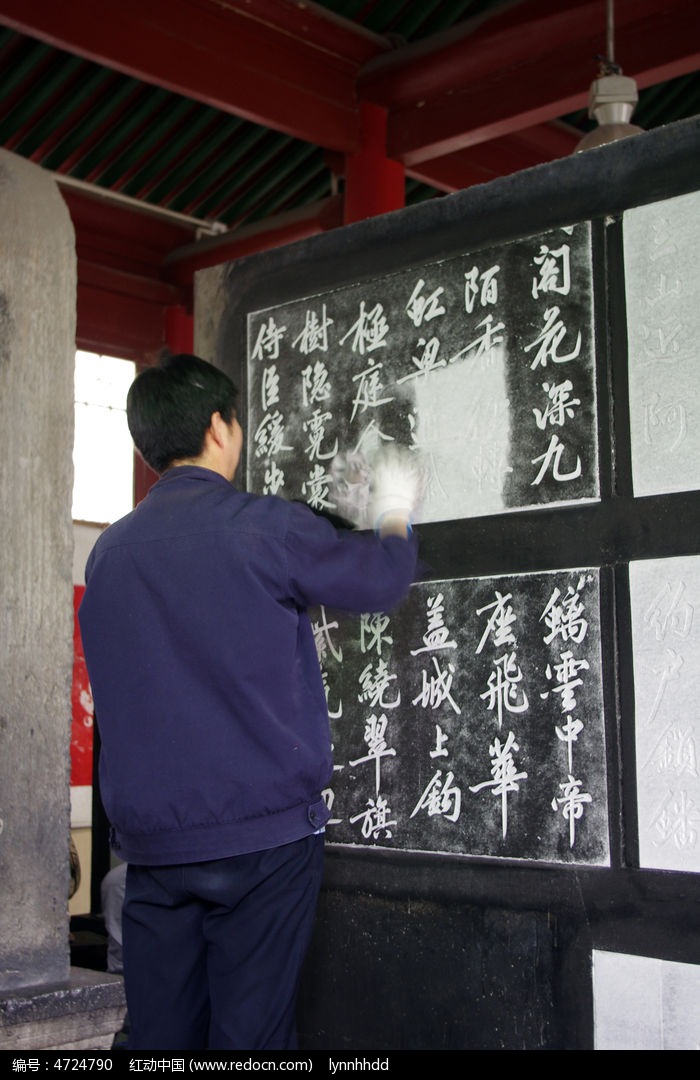 三山近阿
閣花深九
陌香
虹梁
極庭
樹隐霓裳
侍臣緩步
户鎖
雲中帝
座飛華
盖城上鈎
陳繞翠旗
紫氣
编号：4724790 红动中国 (www.redocn.com) lynnhhdd